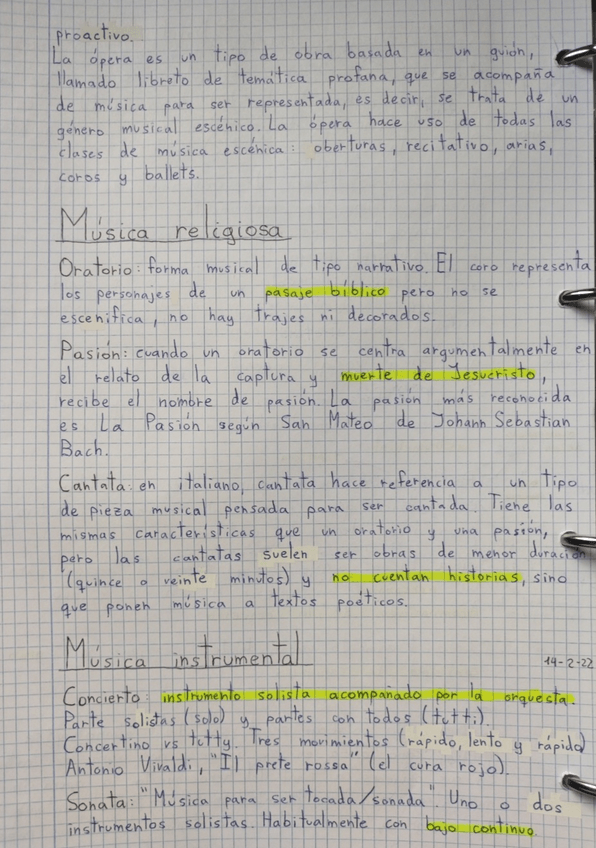 proactivo.
La ópera es un tipo de obra basada en un guión,
llamado libreto de temática profana, que se acompaña
de música para ser representada, es decir, se trata de un
género musical escénico. La ópera hace uso de todas las
clases de música escénica: oberturas, recitativo, arias,
coros y ballets.
Música religiosa
Oratorio: forma musical de tipo narrativo. El coro representa
los personajes de un pasaje bíblico pero no se
escenifica, no hay trajes ni decorados.
Pasión: cuando un oratorio se centra argumentalmente en
el relato de la captura y muerte de Jesucristo,
recibe el nombre de pasión. La pasión más reconocida
es La Pasión según San Mateo de Johann Sebastian
Bach.
Cantata: en italiano, cantata hace referencia a un tipo
de pieza musical pensada para ser cantada. Tiene las
mismas características que un oratorio y una pasión,
pero las cantatas suelen ser obras de menor duración
(quince o veinte minutos) y no cuentan historias, sino
que ponen música a textos poéticos.
Música instrumental
14-2-22
Concierto: instrumento solista acompañado por la orquesta.
Parte solistas (solo) y partes con todos (tutti).
Concertino vs tutty. Tres movimientos (rápido, lento y rápido)
Antonio Vivaldi, "Il prete rossa" (el cura rojo).
Sonata: "Música para ser tocada/sonada". Uno o dos
instrumentos solistas. Habitualmente con bajo continuo.